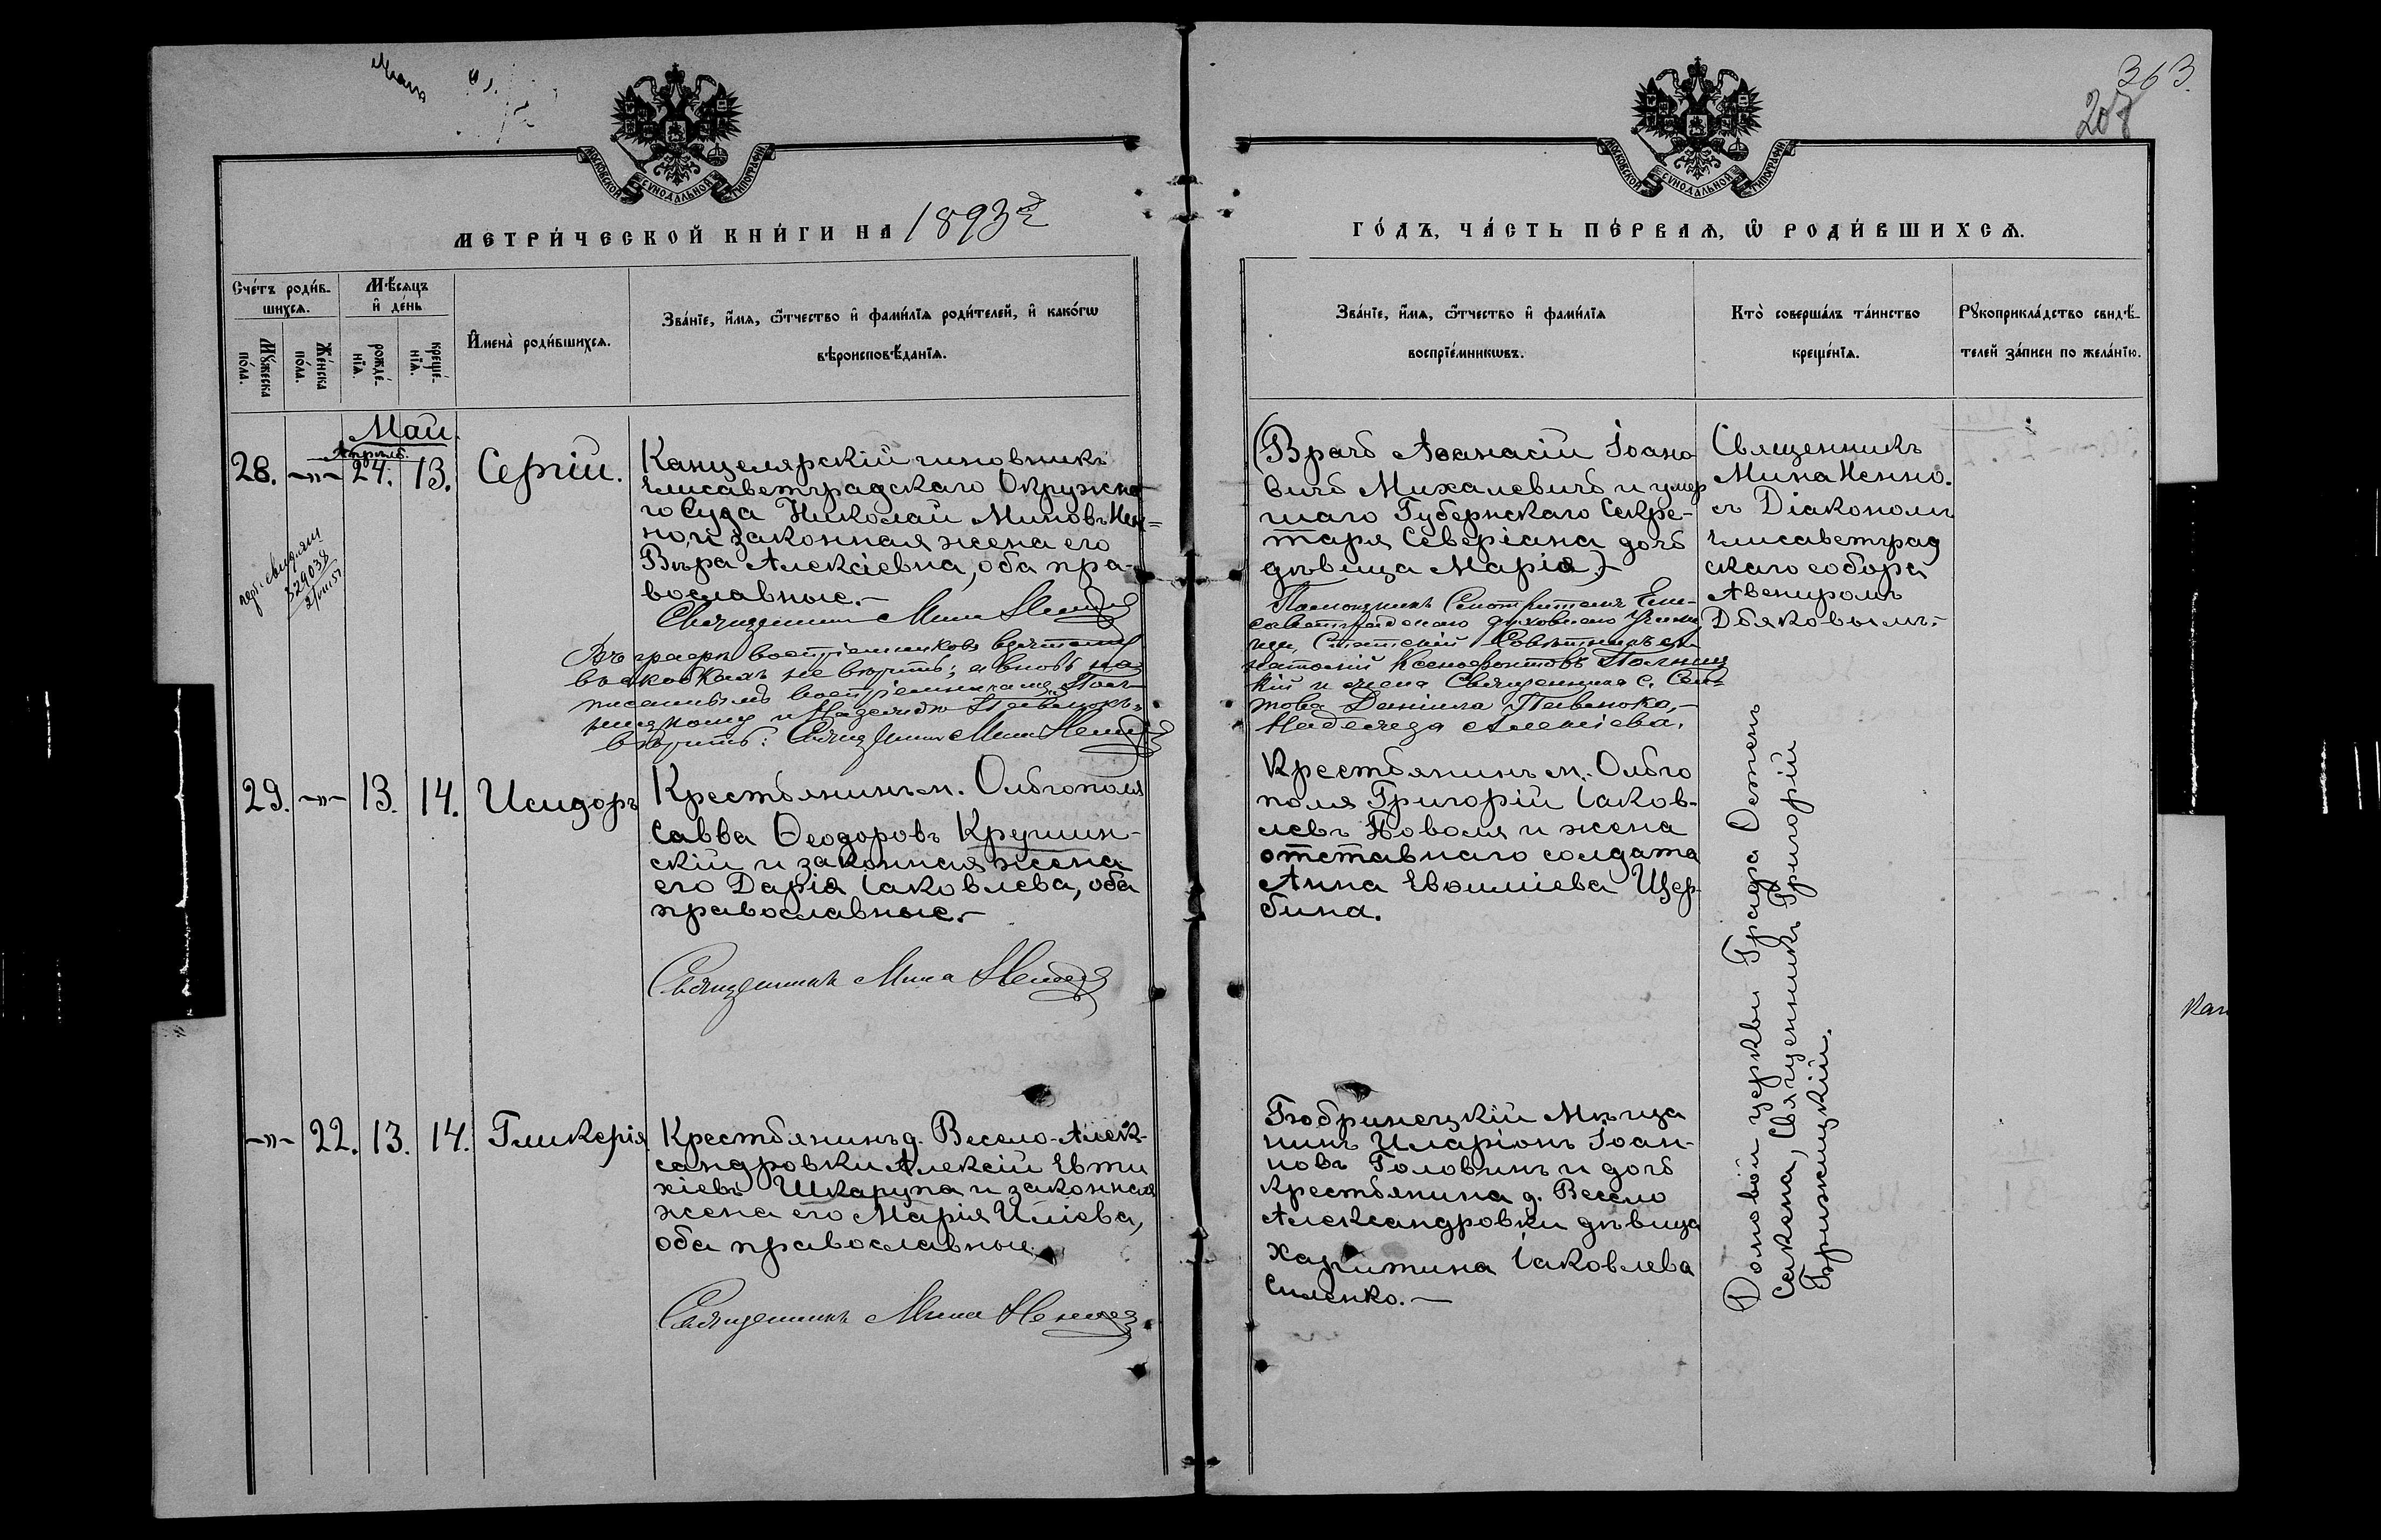 363.
207
МОСКОВСКОЙ СѴНОДАЛЬНОЙ ТИПОГРАФІИ
МОСКОВСКОЙ СѴНОДАЛЬНОЙ ТИПОГРАФІИ
МЕТРИ́ЧЕСКОЙ КНИ́ГИ НА 1893й
ГО́ДЪ, ЧА́СТЬ ПЕ́РВАЯ, Ѡ РОДИ́ВШИХСЯ.
Сче́тъ роди́в-
шихся.
Мѣ́сяцъ
и де́нь
Му́жеска по́ла.
Же́нска по́ла.
рожде́-
нія.
креще́-
нія.
И́мена роди́вшихся.
Зва́ніе, и́мя, ѻ́тчество и фами́лія роди́телей, и како́гѡ
вѣроисповѣ́данія.
Зва́ніе, и́мя, ѻ́тчество и фами́лія
воспріе́мникѡвъ.
Кто̀ соверша́лъ та́инство
креще́нія.
Рукоприкла́дство свидѣ́-
телей за́писи по жела́нію.
Май.
Апрѣль.
28. -"- 24. 13. Сергій.
Канцелярскій чиновникъ
Елисаветградскаго Окружна
го Суда Николай Миновъ Нен=
но, и законная жена его
Вѣра Алексіевна, оба пра-
вославные.-
Священникъ Мина
329038
Въ графѣ воспріемниковъ
въ скобкахъ не вѣрить; а вновь на
писаннымъ воспріемникамъ
вѣрить: Священникъ Мина
(Врачъ Аѳанасій Іоано
вичъ Михалевичъ и умер
шаго Губернскаго Секре-
таря Северіана дочь
дѣвица Марія.)
Помощникъ Смотрителя Ели-
саветградскаго духовнаго Учили
ща, Статскій Совѣтникъ
Ксенофонтовъ
кій и жена Священника с.
Даніила Павенко,-
Надежда Алексіева.
Священникъ
Мина Ненно.
съ Діакономъ
Елисаветград
скаго собора
Авениромъ
Дьяковымъ.-
29. -"- 13. 14. Исидоръ
Крестьянинъ м. Ольгополя
Савва Ѳеодоровъ Крушин-
скій и законная жена
его Дарія Іаковлева, оба
православные.-
Священникъ Мина
Крестьянинъ м. Ольго
поля Григорій Іаков-
левъ Поволя и жена
отставнаго солдата
Анна Евѳиміева Щер-
бина.
Домовой церкви Графа Остенъ
Сакена, Священникъ Григорій
Брижицкій.
-"- 22. 13. 14. Гликерія
Крестьянинъ д. Весело-Алек-
сандровки Алексій Евти
хіевъ Шкарупа и законная
жена его Марія Иліева,
оба православные.
Священникъ Мина
Бобринецкій Мѣща
нинъ Иларіонъ Іоан-
новъ Головинъ и дочь
крестьянина д. Весело
Александровки дѣвица
Харитина Іаковлева
Силенко.-
Кан